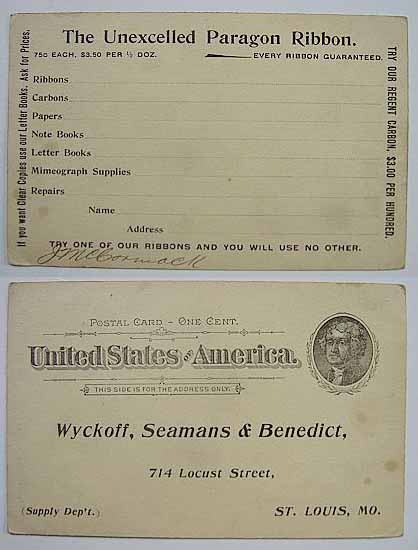 The Unexcelled Paragon Ribbon.
75c EACH, $3.50 PER ½ DOZ. EVERY RIBBON GUARANTEED.
If you want Clear Copies use our Letter Books. Ask for Prices.
Ribbons
Carbons
Papers
Note Books
Letter Books
Mimeograph Supplies
Repairs
Name
Address
TRY OUR REGENT CARBON, $3.00 PER HUNDRED.
TRY ONE OF OUR RIBBONS AND YOU WILL USE NO OTHER.
J McCormack
POSTAL CARD - ONE CENT.
United States of America.
THIS SIDE IS FOR THE ADDRESS ONLY.
Wyckoff, Seamans & Benedict,
714 Locust Street,
(Supply Dep't.) ST. LOUIS, MO.